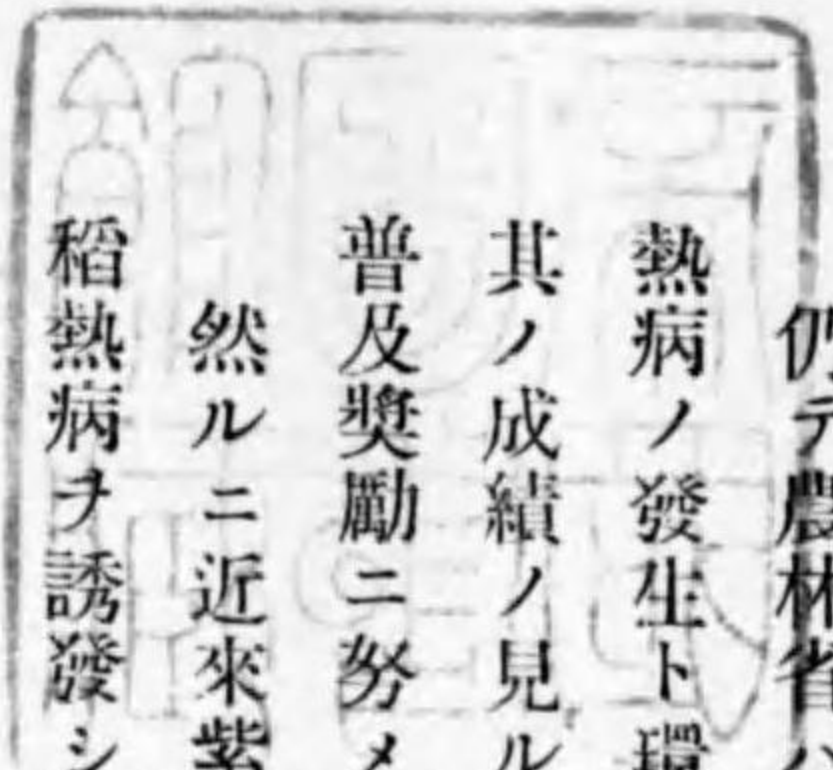 仍テ農林省ハ
熱病ノ發生ト環
其ノ成績ノ見ル
普及奬勵ニ努メ
然ルニ近來紫
稻熱病ヲ誘發シ